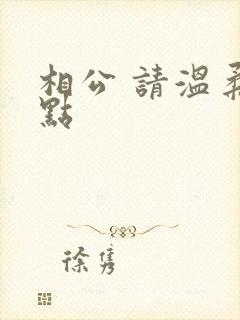 相公 請溫柔
點
徐雋